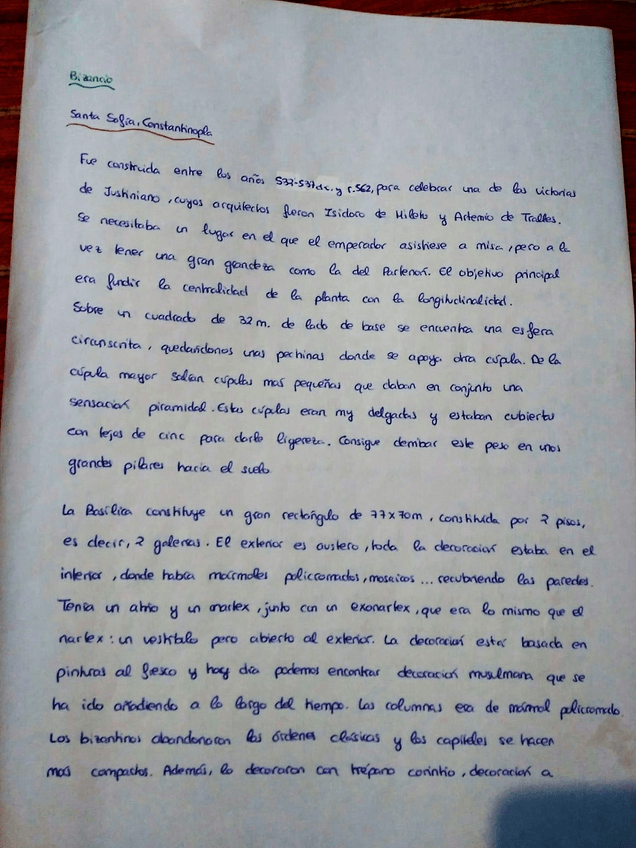 Bizancio
Santa Sofía, Constantinopla
Fue construida entre los años 532-537 d.c. y r.562, para celebrar una de las victorias
de Justiniano, cuyos arquitectos fueron Isidoro de Mileto y Artemio de Tralles.
Se necesitaba un lugar en el que el emperador asistiese a misa, pero a la
vez tener una gran grandeza como la del Partenón. El objetivo principal
era fundir la centralidad de la planta con la longitudinalidad.
Sobre un cuadrado de 32 m. de lado de base se encuentra una esfera
circunscrita, quedándonos unas pechinas donde se apoya otra cúpula. De la
cúpula mayor salían cúpulas más pequeñas que daban en conjunto una
sensación piramidal. Estas cúpulas eran muy delgadas y estaban cubiertas
con tejas de cinc para darle ligereza. Consigue derribar este peso en unos
grandes pilares hacia el suelo
La Basílica constituye un gran rectángulo de 77x70m, constituída por 2 pisos,
es decir, 2 galerías. El exterior es austero, toda la decoración estaba en el
interior, donde había mármoles policromados, mosaicos... recubriendo las paredes.
Tenía un atrio y un nartex, junto con un exonartex, que era lo mismo que el
nartex: un vestíbulo pero abierto al exterior. La decoración está basada en
pinturas al fresco y hoy día podemos encontrar decoración musulmana que se
ha ido añadiendo a lo largo del tiempo. Las columnas era de mármol policromado.
Los bizantinos abandonaron los órdenes clásicos y los capiteles se hacen
más compactos. Además, lo decoraron con trépano corintio, decoración a